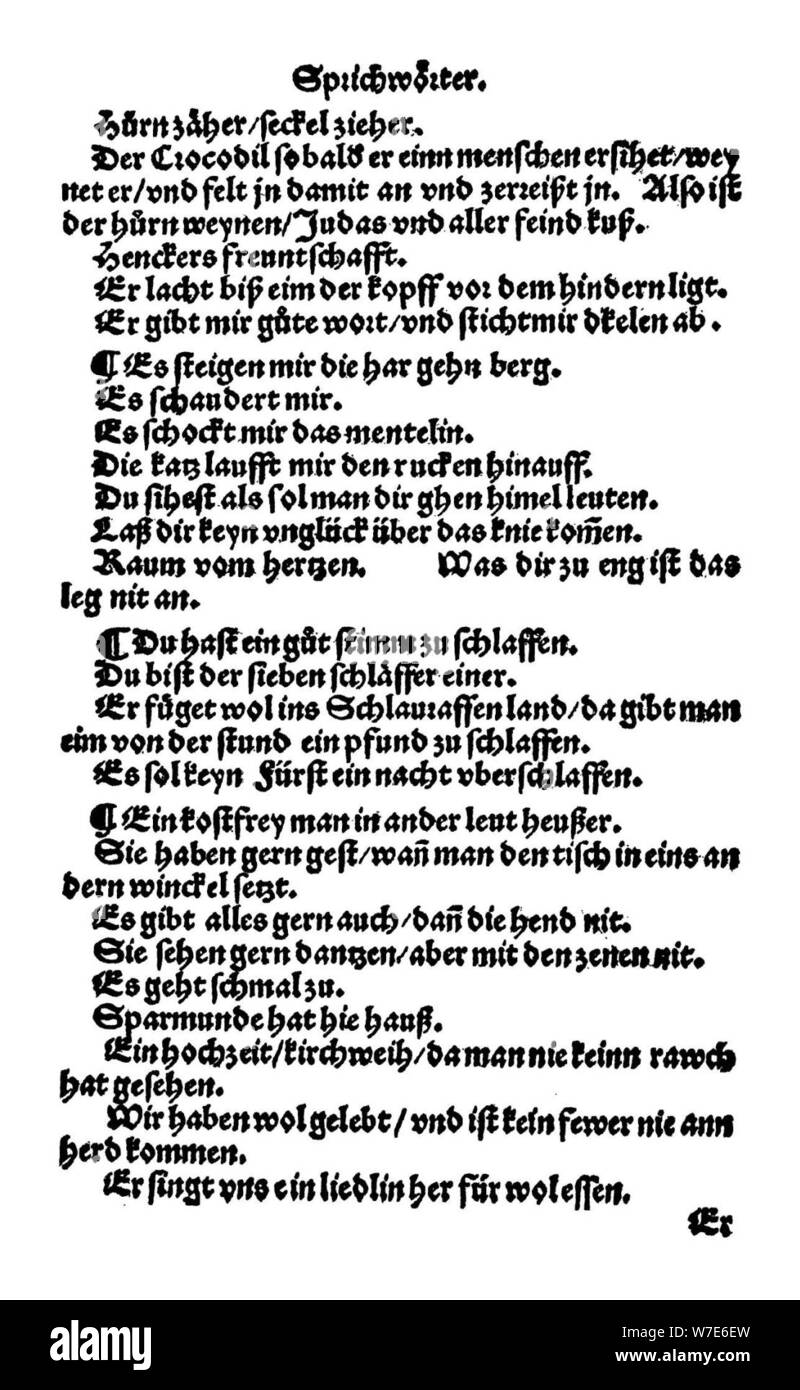 Sprichwoͤrter.
Huͦrn zaͤher/ seckel zieher.
Der Crocodil so bald er einn menschen ersihet/ wey
net er/ vnd felt jn damit an vnd zerreißt jn. Also ist
der huͦrn weynen/ Judas vnd aller feind kuß.
Henckers freuntschafft.
Er lacht biß eim der kopff vor dem hindern ligt.
Er gibt mir guͦte wort/ vnd sticht mir dkelen ab.
¶ Es steigen mir die har gehn berg.
Es schaudert mir.
Es schockt mir das mentelin.
Die katz laufft mir den rucken hinauff.
Du sihest als sol man dir ghen himel leuten.
Laß dir keyn vnglück über das knie kom̃en.
Raum vom hertzen. Was dir zu eng ist das
leg nit an.
¶ Du hast ein guͦt stimm zu schlaffen.
Du bist der sieben schlaͤffer einer.
Er fuͤget wol ins Schlauraffen land/ da gibt man
eim von der stund ein pfund zu schlaffen.
Es sol keyn Fürst ein nacht vberschlaffen.
¶ Ein kostfrey man in ander leut heußer.
Sie haben gern gest/ wañ man den tisch in eins an
dern winckel setzt.
Es gibt alles gern auch/ dañ die hend nit.
Sie sehen gern dantzen/ aber mit den zenen nit.
Es geht schmal zu.
Sparmunde hat hie hauß.
Ein hochzeit/ kirchweih/ da man nie keinn rawch
hat gesehen.
Wir haben wol gelebt/ vnd ist kein fewer nie ann
herd kommen.
Er singt vns ein liedlin her für wol essen.
Er
alamy
Image ID: W7E6EW
www.alamy.com